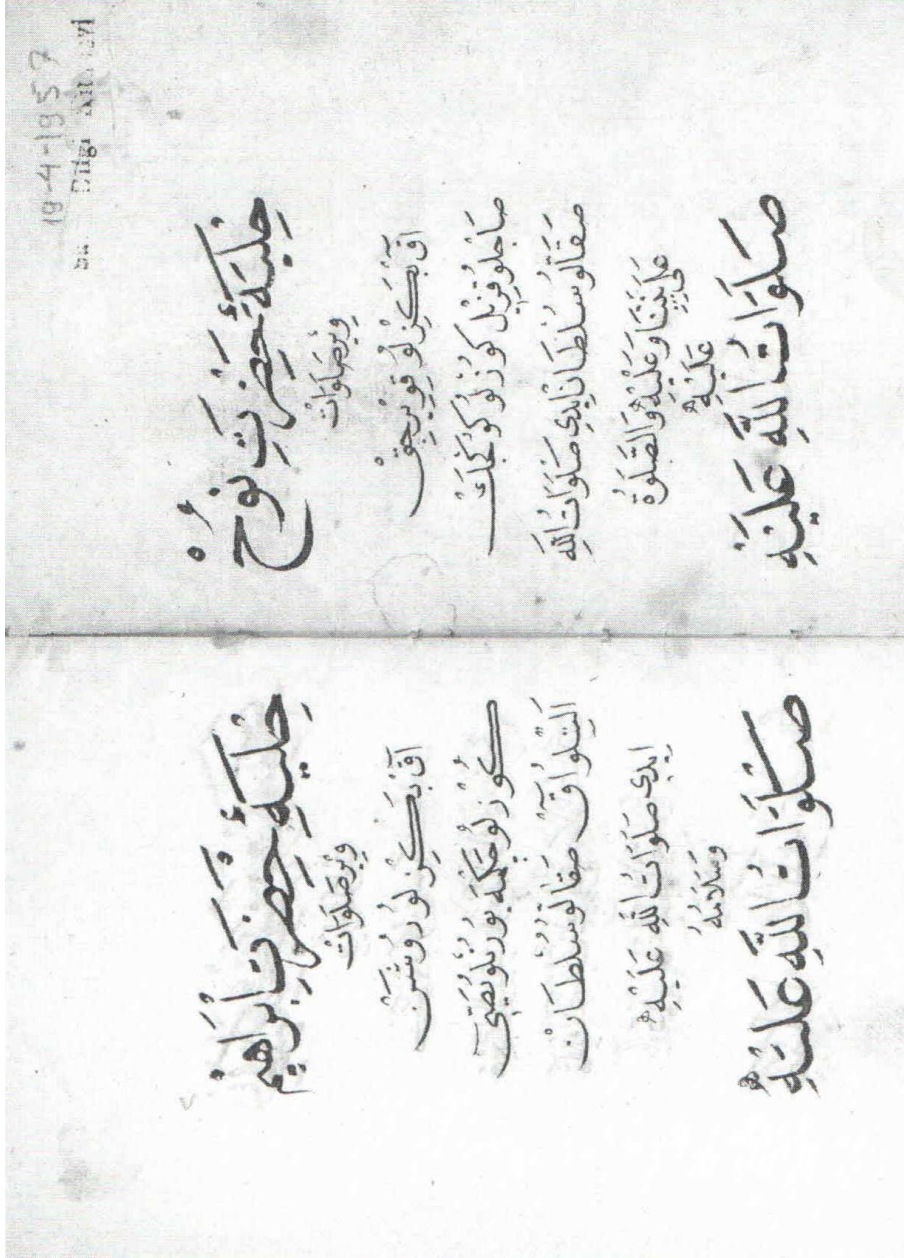 18-4-1957
Bilgi
حِلْيَۀِ حَضْرَتِ نُوحْ
وِيرْصَلَوَاتْ
آقْ بَكِزْلُو قِوِيرْجِقْ
صَاچْلُو قِزِلْ كُوزْلُو كُوكْجَكْ
صَقَاللُو سُلْطَان اِيدِى صَلَوَاتُ اللهِ
عَلَى نَبِيِّنَا وَعَلَيْهِ وَالصَّلَوةُ
عَلَيْهِ
صَلَوَاتُ اللهِ عَلَيْهِ
حِلْيَۀِ حَضْرَتِ اِبْرَاهِيمْ
وِيرْصَلَوَاتْ
آقْ بَكِزْلُو رُوشَنْ
كُوزْلُو چَكْمَه بُورُنْلُو يَصِّى
اَلِنْلُو آقْ صَقَالُو سُلْطَانْ
اِيدِى صَلَوَاتُ اللهِ عَلَيْهِ
وَسَلَامُهُ
صَلَوَاتُ اللهِ عَلَيْهِ